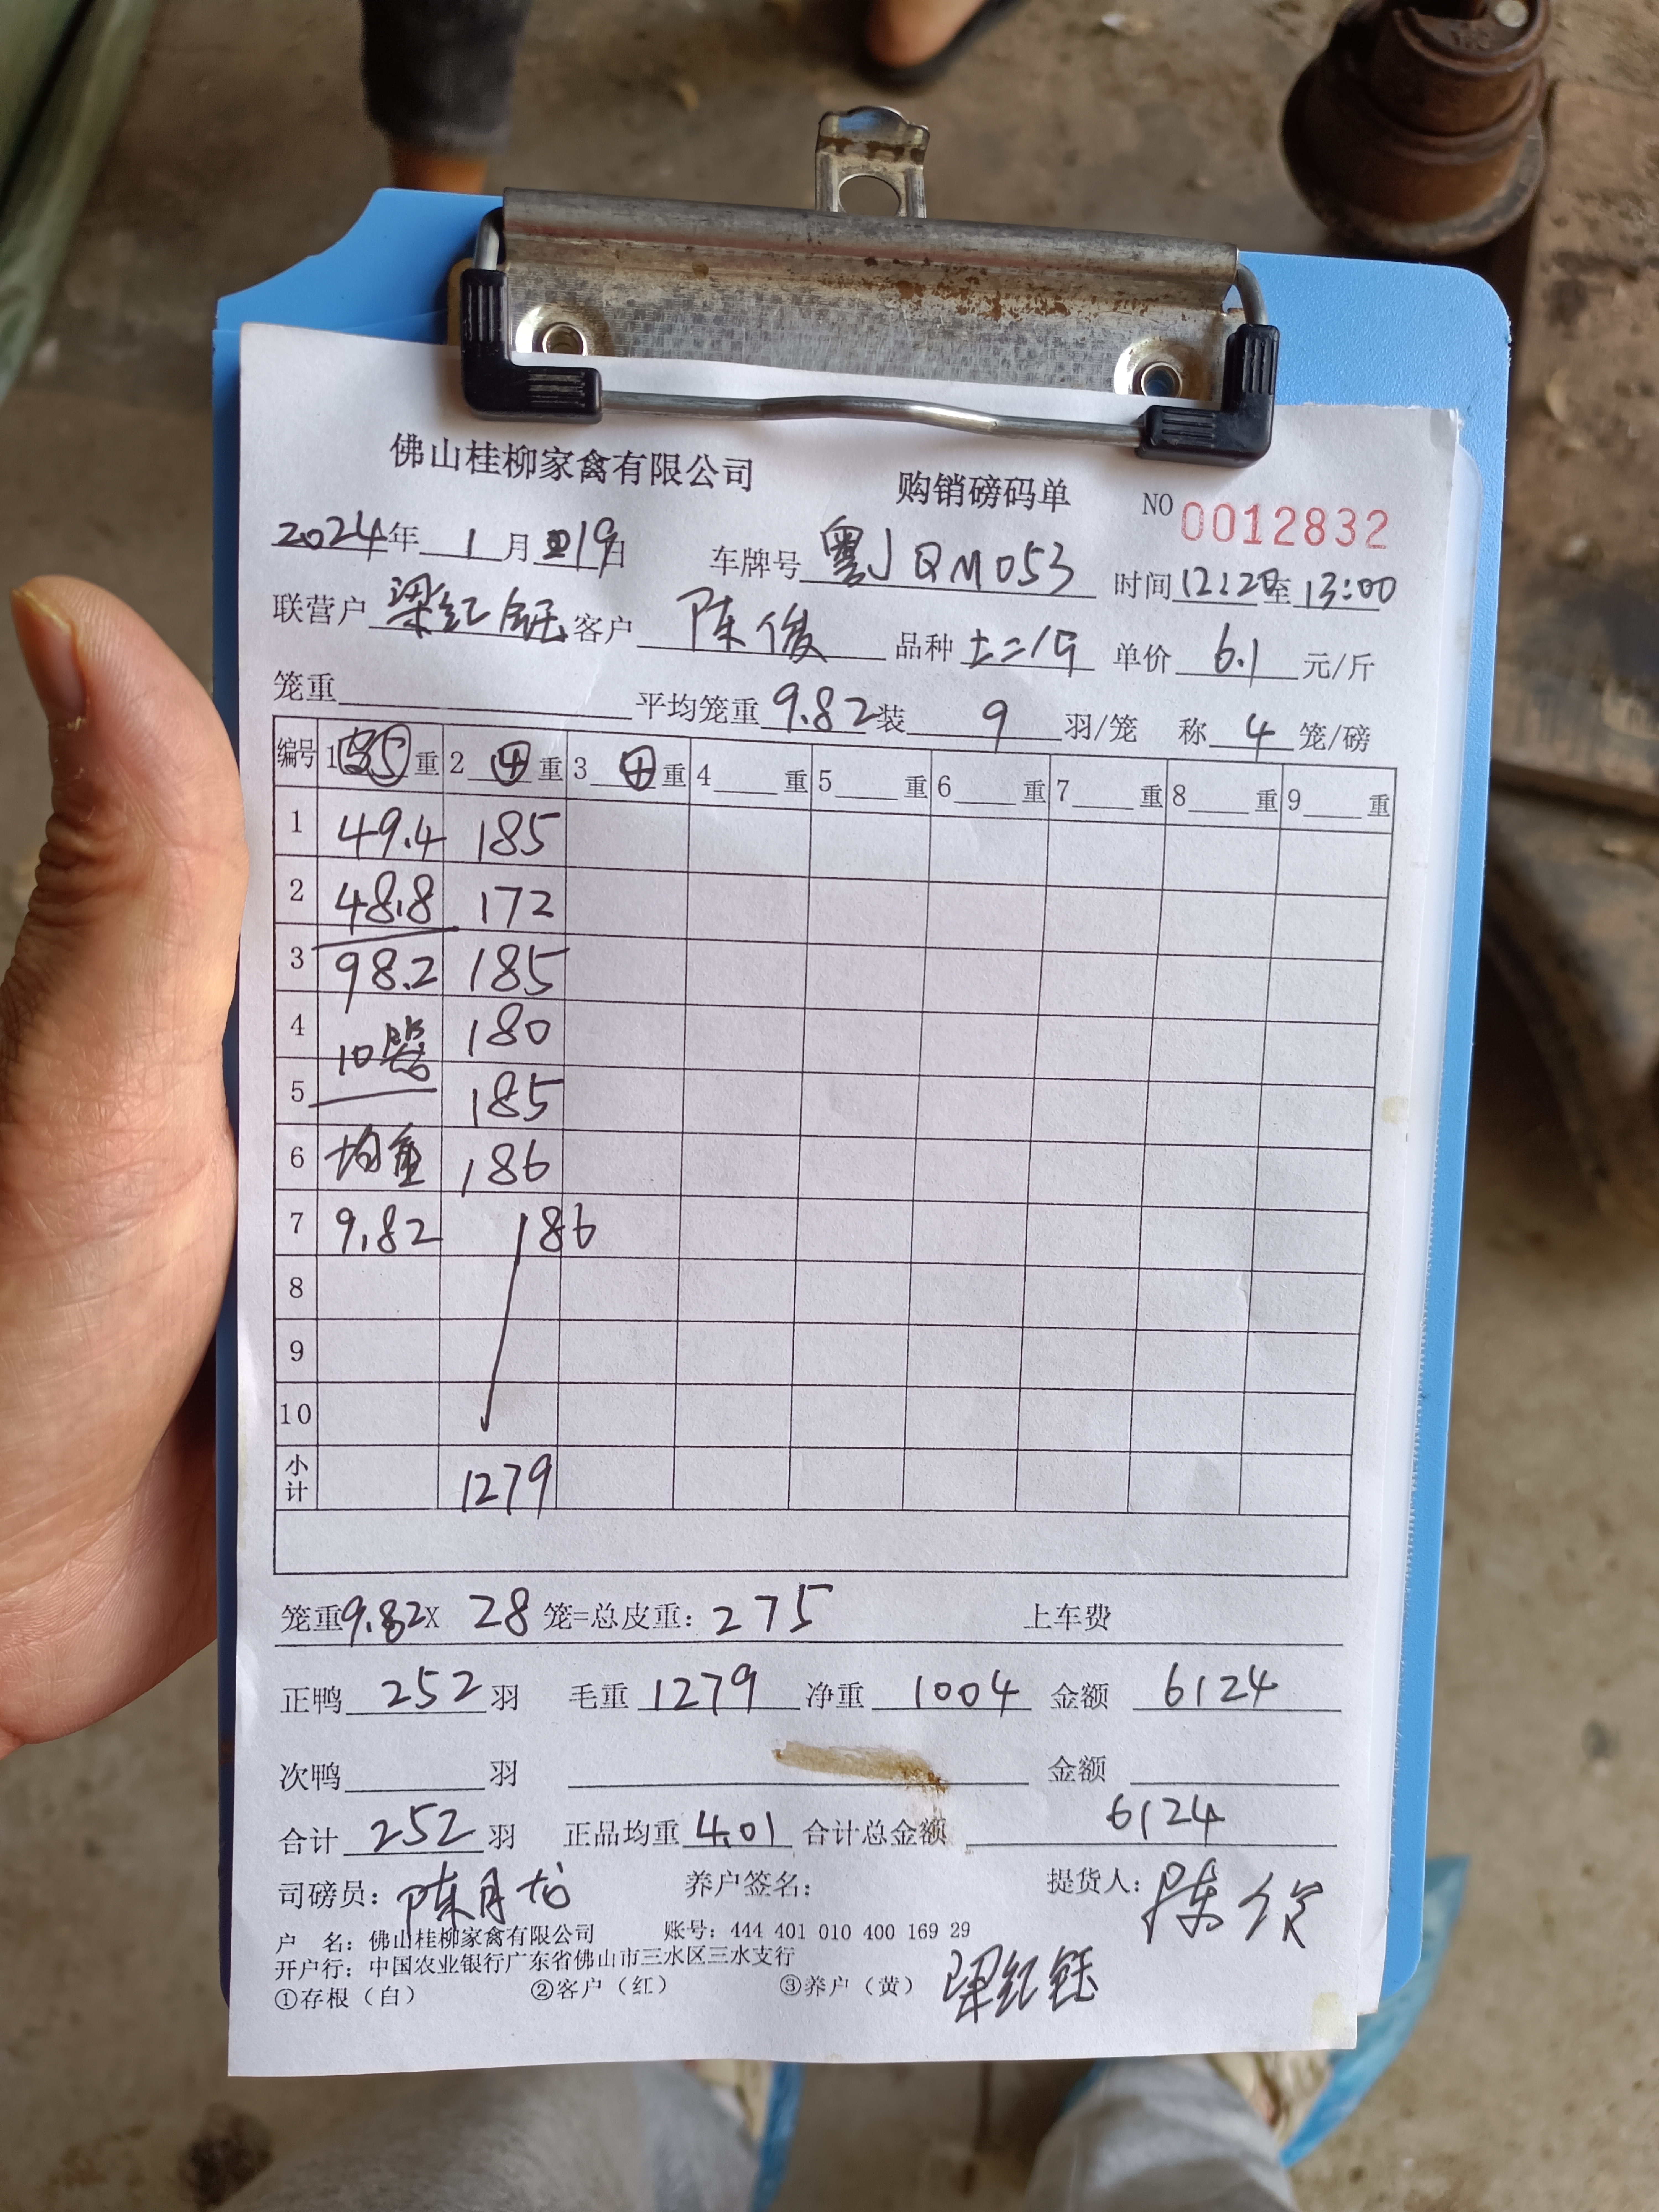 佛山桂柳家禽有限公司 购销磅码单 NO 0012832
2024年 1月 19日 车牌号 粤JQM053 时间 12:20至13:00
联营户 梁红钰 客户 陈俊 品种 土二 单价 6.1 元/斤
笼重 平均笼重 9.82 装 9 羽/笼 称 4 笼/磅
编号 1 5 重 2 4 重 3 4 重 4 重 5 重 6 重 7 重 8 重 9 重
1 49.4 185
2 48.8 172
3 98.2 185
4 10 180
5 185
6 均重 186
7 9.82 186
8
9
10
小计 1279
笼重9.82X 28 笼=总皮重: 275 上车费
正鸭 252 羽 毛重 1279 净重 1004 金额 6124
次鸭 羽 金额
合计 252 羽 正品均重 4.01 合计总金额 6124
司磅员: 陈月龙 养户签名: 提货人: 陈俊
户 名: 佛山桂柳家禽有限公司 账号: 444 401 010 400 169 29
开户行: 中国农业银行广东省佛山市三水区三水支行
①存根（白） ②客户（红） ③养户（黄） 梁红钰